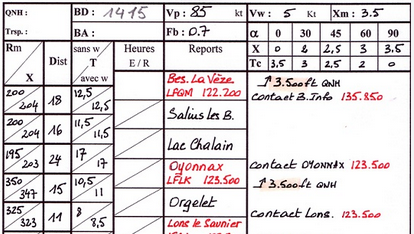 QNH : BD : 1415 Vp : 85 kt Vw : 5 Kt Xm : 3.5
Trsp. : BA : Fb : 0.7 α 0 30 45 60 90
X 0 2 2,5 3 3,5
Tc 3,5 3 2,5 2 0
Rm X Dist sans w T avec w Heures E / R Reports
200 204 18 12,5 12,5 Bes. La Vèze LFQM 122.200
↑ 3.500ft QNH
Contact B.Info 135.850
200 204 16 11,5 11,5 Salins les B.
195 203 24 17 17 Lac Chalain
350 347 15 10,5 11 Oyonnax LFLK 123.500
contact OYONNAX 123.500
↑ 3.500ft QNH
325 323 11 8 8,5 Orgelet
Contact Lons. 123.500
Lons le Saunier